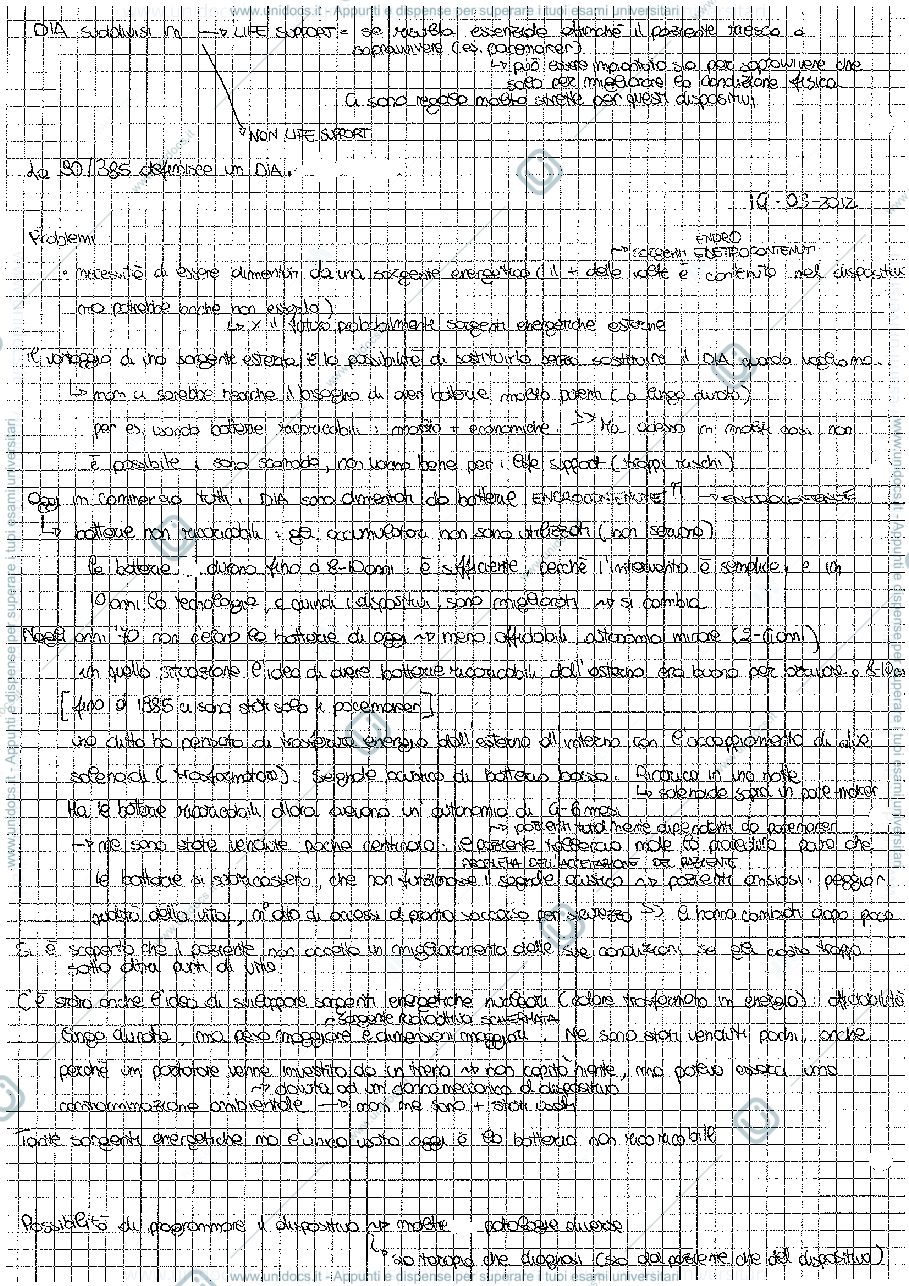 www.unidocs.it - Appunti e dispense per superare i tuoi esami universitari
DIA suddivisi in → LIFE SUPPORT = se risulta essenziale affinché il paziente riesca a
sopravvivere (es. pacemaker)
↳ può essere impiantato sia per sopravvivere che
solo per migliorare la condizione fisica
Ci sono regole molto strette per questi dispositivi
NON LIFE SUPPORT
La 90/385 definisce un DIA.
19-03-2012
Problemi
ENDRO
→ sorgenti ELETTROCONTENUTI
• necessità di essere alimentati da una sorgente energetica (il + delle volte è contenuto nel dispositivo
ma potrebbe anche non esserlo)
↳ x il futuro probabilmente sorgenti energetiche esterne
Il vantaggio di una sorgente esterna è la possibilità di sostituirla senza sostituire il DIA quando vogliamo.
↳ non ci sarebbe neanche il bisogno di aver batterie molto potenti (a lunga durata)
per es. usando batterie ricaricabili: molto + economiche. → Ma questo in molti casi non
è possibile: sono scomode, non vanno bene per i life support (troppi rischi)
Oggi in commercio tutti i DIA sono alimentati da batterie
↳ batterie non ricaricabili: gli accumulatori non sono utilizzati (non servono)
le batterie durano fino a 8-10 anni: è sufficiente, perché l'intervento è semplice, e in
10 anni la tecnologia, e quindi i dispositivi, sono migliorati → si cambia
Negli anni '70 non c'erano le batterie di oggi → meno affidabili, autonomia minore (2-4 anni)
in quella situazione l'idea di avere batterie ricaricabili dall'esterno era buona per
[fino al 1985 ci sono stati solo i pacemaker]
una ditta ha pensato di trasferire energia dall'esterno all'interno con l'accoppiamento di due
solenoidi (trasformatore). Segnale acustico di batteria bassa. Ricarica in una notte
↳ solenoide sopra un pace-maker
Ma le batterie ricaricabili allora avevano un'autonomia di 4-6 mesi
→ pazienti totalmente dipendenti da pacemaker
→ ne sono state vendute poche centinaia. Il paziente male la procedura: paura che
PROBLEMA DELL'ACCETTAZIONE DEL PAZIENTE
le batterie si scaricassero, che non funzionasse il segnale acustico → pazienti ansiosi: peggior
qualità della vita, n° alto di accessi al pronto soccorso per sicurezza → li hanno cambiati dopo poco
Si è scoperto che il paziente non accetta un miglioramento delle sue condizioni se gli costa troppo
sotto altri punti di vista
C'è stata anche l'idea di sviluppare sorgenti energetiche nucleari (calore trasformato in energia): affidabilità
→ Sorgente radioattiva SCHERMATA
lunga durata, ma peso maggiore e dimensioni maggiori. Ne sono stati venduti pochi, anche
perché un portatore venne investito da un treno → non capitò niente, ma poteva esserci una
→ dovuta ad un danno meccanico al dispositivo
contaminazione ambientale → non ne sono + stati usati
Tante sorgenti energetiche ma l'unica usata oggi è la batteria non ricaricabile
Possibilità di programmare il dispositivo → molte patologie diverse
↳ sia terapia che diagnosi (sia del paziente che del dispositivo)
www.unidocs.it - Appunti e dispense per superare i tuoi esami universitari